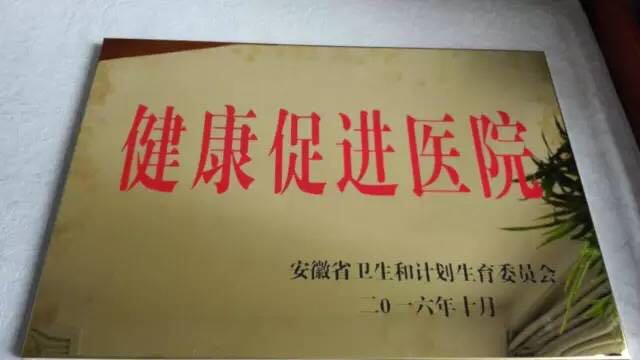 健康促进医院
安徽省卫生和计划生育委员会
二0一六年十月